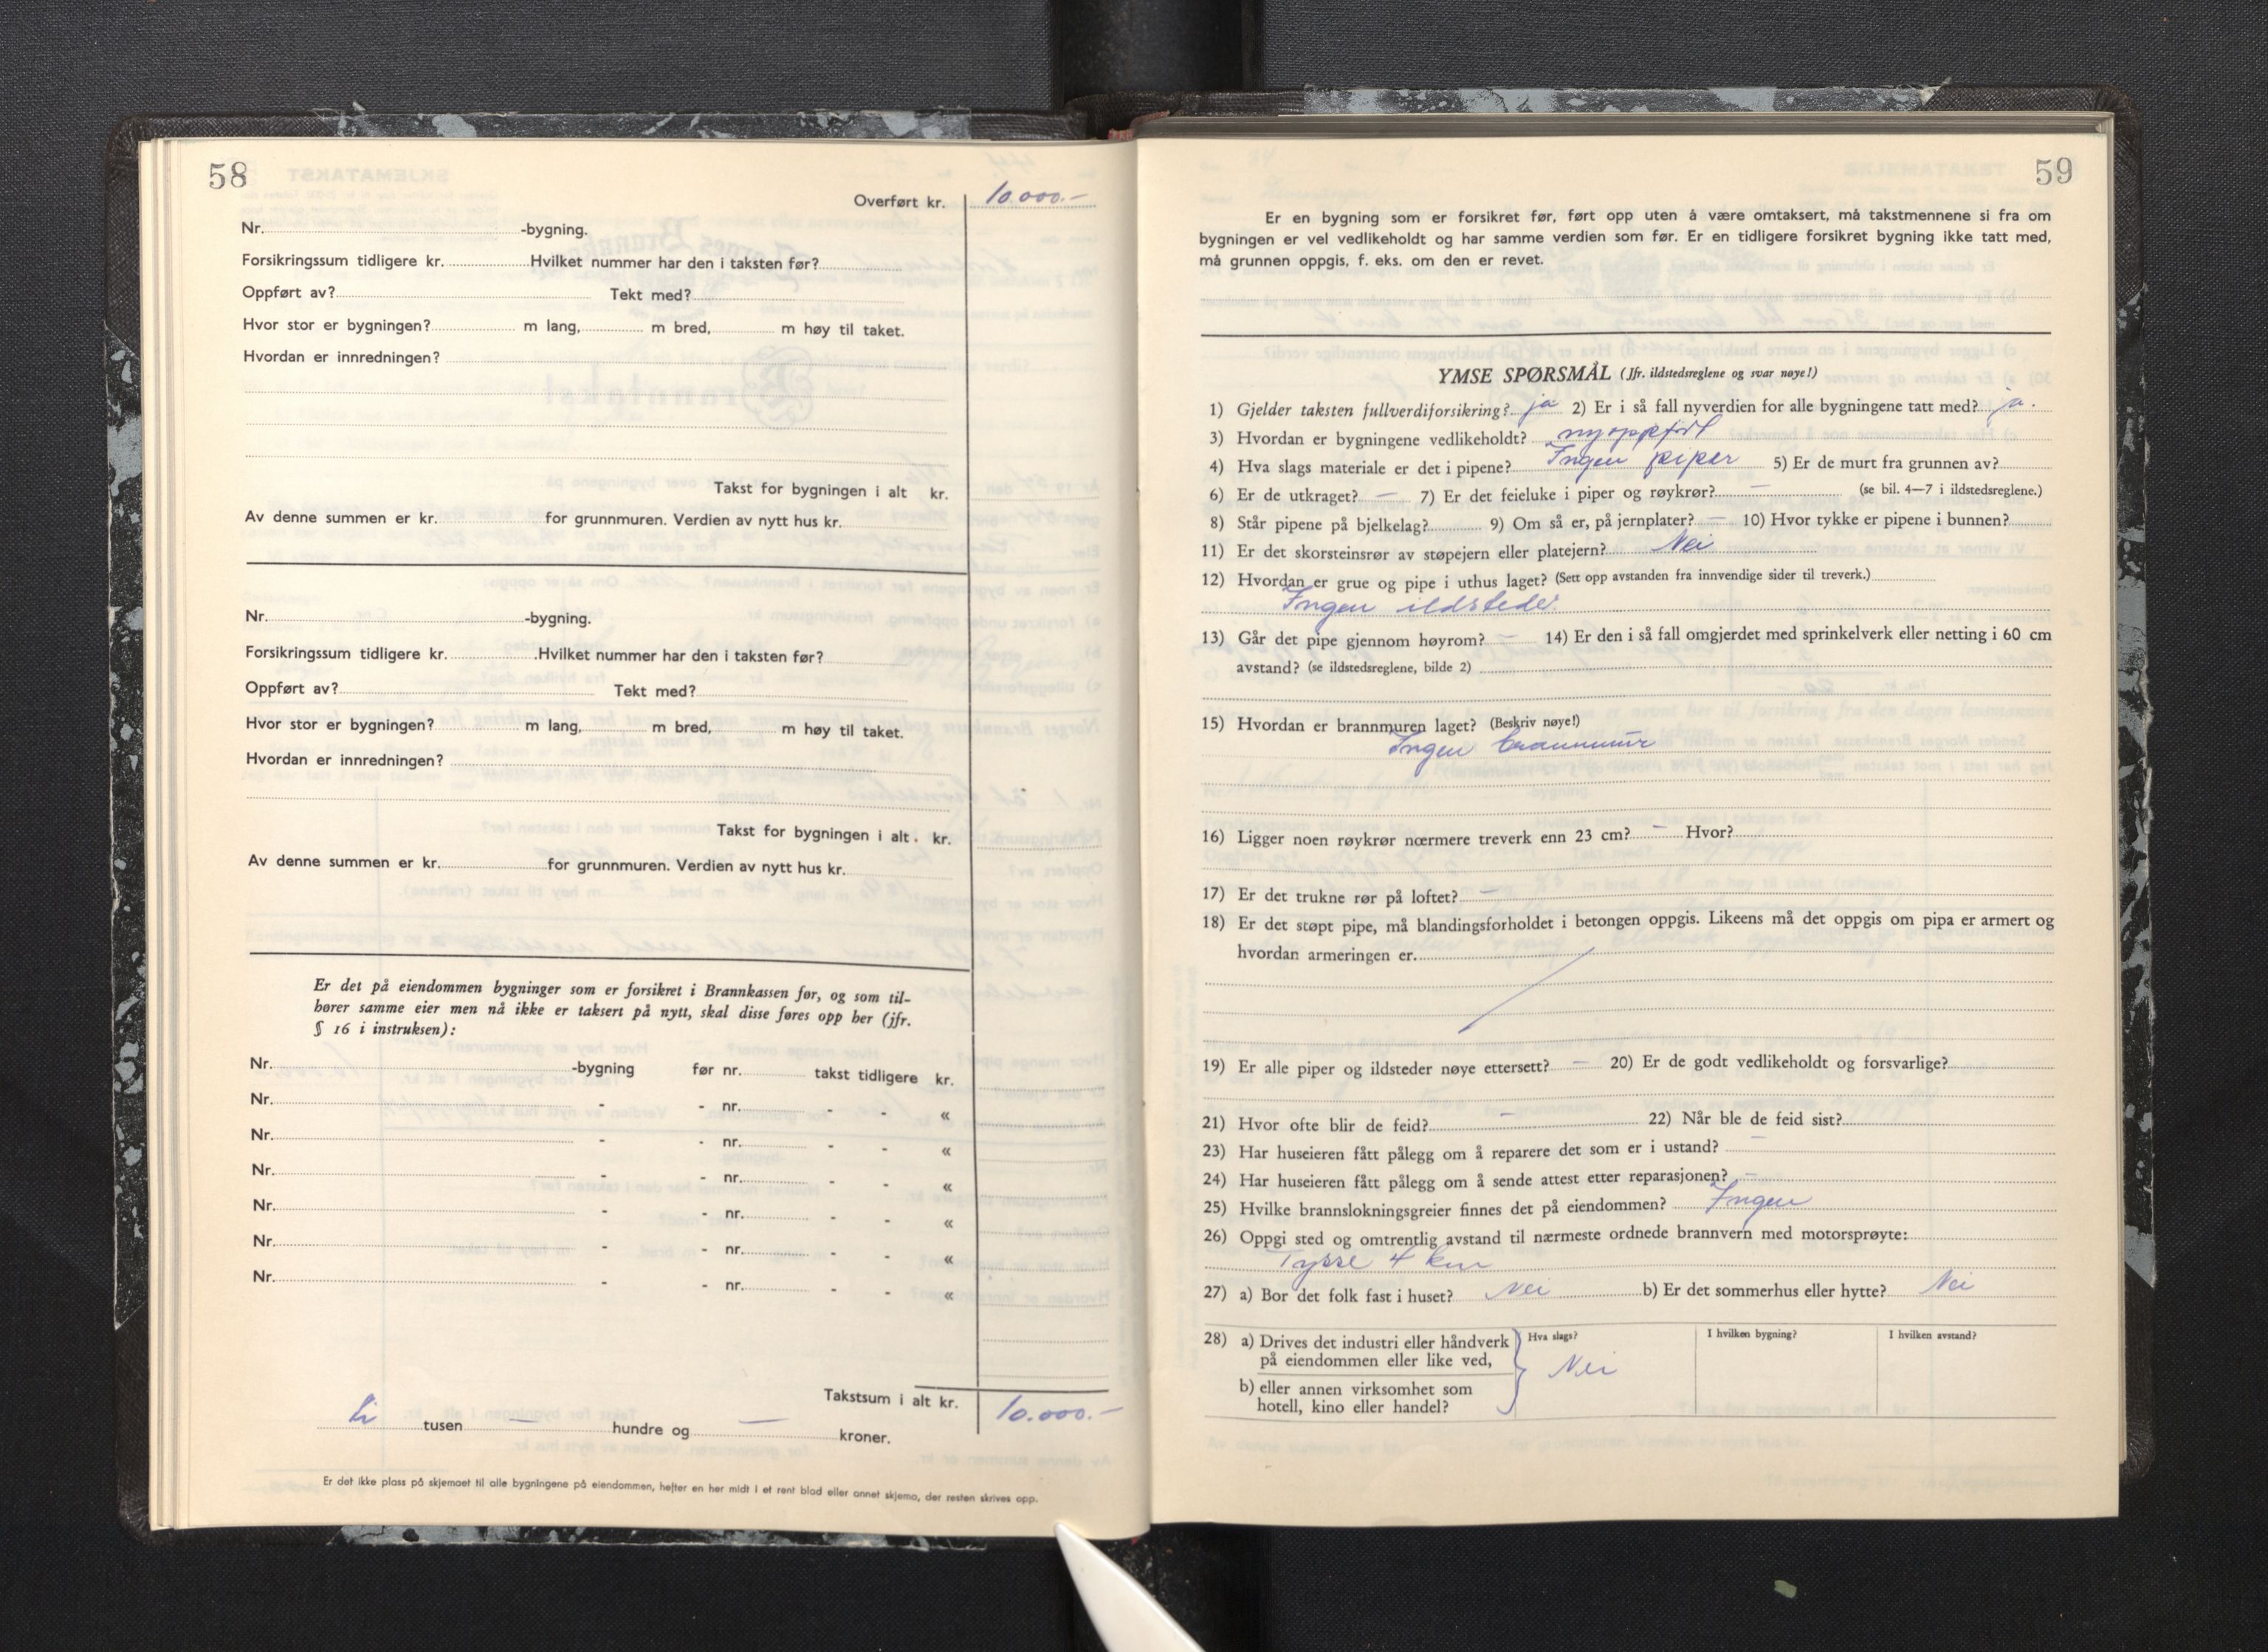 58
Overført kr. 10.000.-
Nr. -bygning.
Forsikringssum tidligere kr. Hvilket nummer har den i taksten før?
Oppført av? Tekt med?
Hvor stor er bygningen? m lang, m bred, m høy til taket.
Hvordan er innredningen?
Takst for bygningen i alt kr.
Av denne summen er kr. for grunnmuren. Verdien av nytt hus kr.
Nr. -bygning.
Forsikringssum tidligere kr. Hvilket nummer har den i taksten før?
Oppført av? Tekt med?
Hvor stor er bygningen? m lang, m bred, m høy til taket.
Hvordan er innredningen?
Takst for bygningen i alt. kr.
Av denne summen er kr. for grunnmuren. Verdien av nytt hus kr.
Er det på eiendommen bygninger som er forsikret i Brannkassen før, og som til-
hører samme eier men nå ikke er taksert på nytt, skal disse føres opp her (jfr.
§ 16 i instruksen):
Nr. -bygning før nr. takst tidligere kr.
Nr. - - nr. - - «
Nr. - - nr. - - «
Nr. - - nr. - - «
Nr. - - nr. - - «
Nr. - - nr. - - «
Nr. - - nr. - - «
Takstsum i alt kr. 10.000.-
Ti tusen — hundre og — kroner.
Er det ikke plass på skjemaet til alle bygningene på eiendommen, hefter en her midt i et rent blad eller annet skjema, der resten skrives opp.
59
Er en bygning som er forsikret før, ført opp uten å være omtaksert, må takstmennene si fra om
bygningen er vel vedlikeholdt og har samme verdien som før. Er en tidligere forsikret bygning ikke tatt med,
må grunnen oppgis, f. eks. om den er revet.
YMSE SPØRSMÅL (Jfr. ildstedsreglene og svar nøye!)
1) Gjelder taksten fullverdiforsikring? ja 2) Er i så fall nyverdien for alle bygningene tatt med? ja.
3) Hvordan er bygningene vedlikeholdt? nyoppført
4) Hva slags materiale er det i pipene? Ingen piper 5) Er de murt fra grunnen av?
6) Er de utkraget? — 7) Er det feieluke i piper og røykrør? — (se bil. 4—7 i ildstedsreglene.)
8) Står pipene på bjelkelag? 9) Om så er, på jernplater? — 10) Hvor tykke er pipene i bunnen?
11) Er det skorsteinsrør av støpejern eller platejern? Nei
12) Hvordan er grue og pipe i uthus laget? (Sett opp avstanden fra innvendige sider til treverk.)
Ingen ildsteder
13) Går det pipe gjennom høyrom? — 14) Er den i så fall omgjerdet med sprinkelverk eller netting i 60 cm
avstand? (se ildstedsreglene, bilde 2)
15) Hvordan er brannmuren laget? (Beskriv nøye!)
Ingen brannmur
16) Ligger noen røykrør nærmere treverk enn 23 cm? — Hvor?
17) Er det trukne rør på loftet? —
18) Er det støpt pipe, må blandingsforholdet i betongen oppgis. Likeens må det oppgis om pipa er armert og
hvordan armeringen er.
19) Er alle piper og ildsteder nøye ettersett? — 20) Er de godt vedlikeholdt og forsvarlige?
21) Hvor ofte blir de feid? — 22) Når ble de feid sist?
23) Har huseieren fått pålegg om å reparere det som er i ustand? —
24) Har huseieren fått pålegg om å sende attest etter reparasjonen? —
25) Hvilke brannslokningsgreier finnes det på eiendommen? Ingen
26) Oppgi sted og omtrentlig avstand til nærmeste ordnede brannvern med motorsprøyte:
Tysse 4 km
27) a) Bor det folk fast i huset? Nei b) Er det sommerhus eller hytte? Nei
28) a) Drives det industri eller håndverk Hva slags? I hvilken bygning? I hvilken avstand?
på eiendommen eller like ved, Nei
b) eller annen virksomhet som
hotell, kino eller handel?